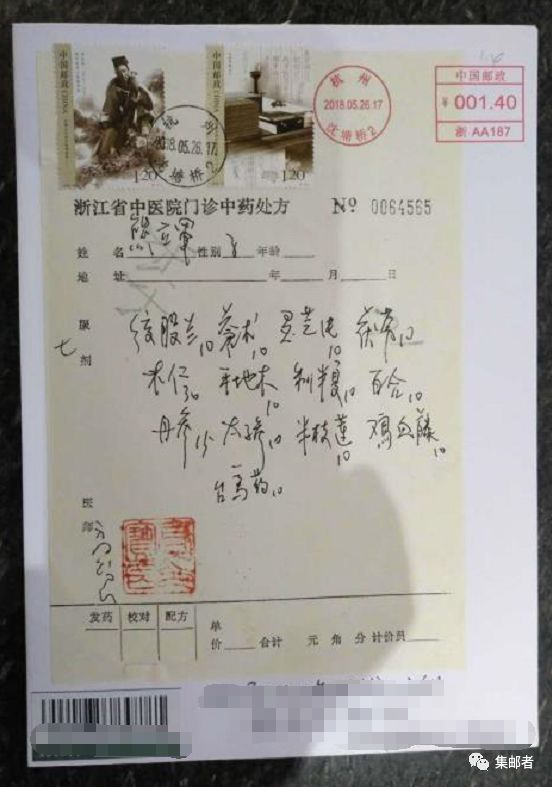 中国邮政
CHINA
120
中国邮政
CHINA
120
杭州
2018.05.26.17
杭州
2018.05.26.17
沈塘桥2
中国邮政
¥ 001.40
浙.AA187
浙江省中医院门诊中药处方 Nº 0064565
姓名 性别 年龄
地址 年 月 日
服剂
七
绞股兰10 苍术10 灵芝 10 茯苓10
米仁30 平地木10 制半夏10 百合10
丹参15 太子参10 半枝莲10 鸡血藤10
台乌药10
医师
发药 校对 配方
单价 合计 元 角 分 计价员
集邮者